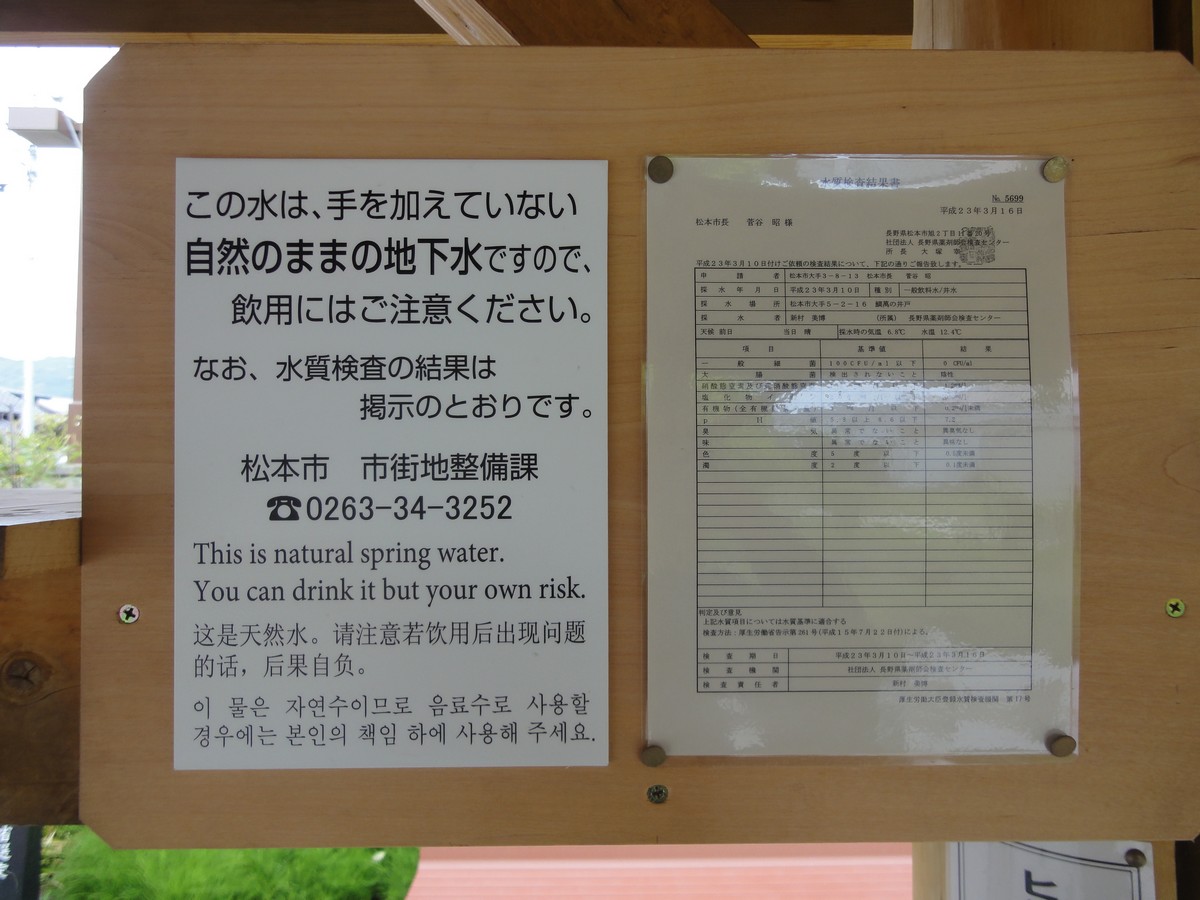 この水は、手を加えていない
自然のままの地下水ですので、
飲用にはご注意ください。
なお、水質検査の結果は
掲示のとおりです。
松本市 市街地整備課
☎0263-34-3252
This is natural spring water.
You can drink it but your own risk.
这是天然水。请注意若饮用后出现问题
的话，后果自负。
이 물은 자연수이므로 음료수로 사용할
경우에는 본인의 책임 하에 사용해 주세요.
水質検査結果書
№ 5699
平成23年3月16日
松本市長 菅谷 昭 様
長野県松本市旭2丁目
社団法人 長野県薬剤師会検査センター
所長 大塚
平成23年3月10日付けご依頼の検査結果について、下記の通りご報告致します。
申請者 松本市大手3-8-13 松本市長 菅谷 昭
採水年月日 平成23年3月10日 種別 一般飲料水/井水
採水場所 松本市大手5-2-16 鯛萬の井戸
採水者 新村 美博 (所属) 長野県薬剤師会検査センター
天候 前日 当日 晴 採水時の気温 6.8℃ 水温 12.4℃
項目 基準値 結果
一般細菌 100CFU/ml以下 0 CFU/ml
大腸菌 検出されないこと 陰性
硝酸態窒素及び亜硝酸態窒素
塩化物イ
有機物(全有機
p H 値 以上 以下
臭気 異常でないこと 異常なし
味 異常でないこと 異常なし
色度 5度以下 0.5度未満
濁度 2度以下 0.1度未満
判定及び意見
上記水質項目については水質基準に適合する
検査方法：厚生労働省告示第261号(平成15年7月22日付)による。
検査期日 平成23年3月10日～平成23年3月16日
検査機関 社団法人 長野県薬剤師会検査センター
検査責任者 新村 美博
厚生労働大臣登録水質検査機関 第17号